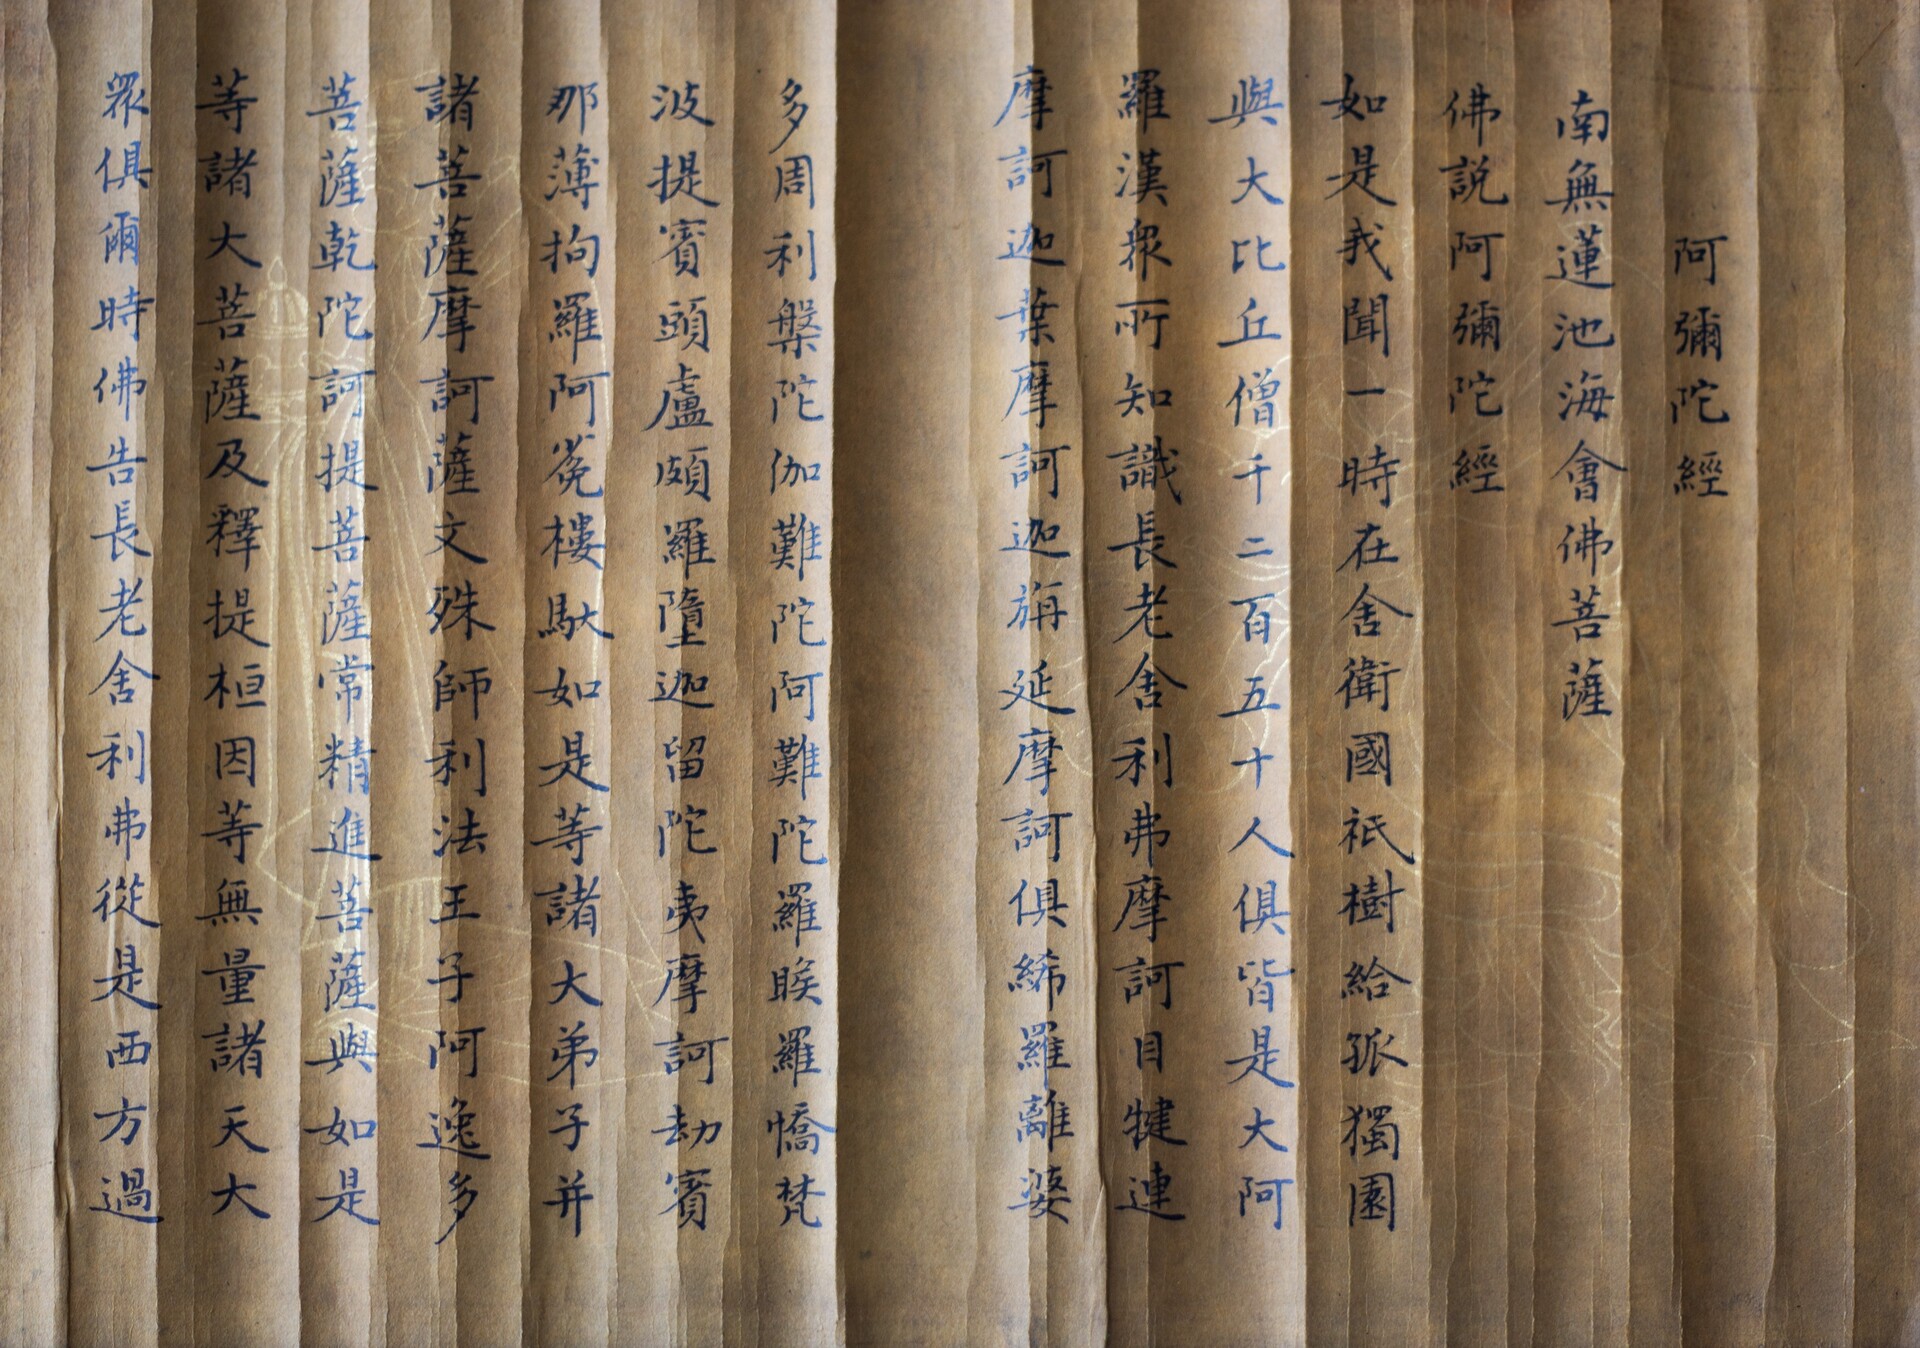 阿彌陀經
南無蓮池海會佛菩薩
佛說阿彌陀經
如是我聞一時在舍衛國祇樹給孤獨園
與大比丘僧千二百五十人俱皆是大阿
羅漢眾所知識長老舍利弗摩訶目犍連
摩訶迦葉摩訶迦旃延摩訶俱絺羅離婆
多周利槃陀伽難陀阿難陀羅睺羅憍梵
波提賓頭盧頗羅墮迦留陀夷摩訶劫賓
那薄拘羅阿㝹樓馱如是等諸大弟子并
諸菩薩摩訶薩文殊師利法王子阿逸多
菩薩乾陀訶提菩薩常精進菩薩與如是
等諸大菩薩及釋提桓因等無量諸天大
眾俱爾時佛告長老舍利弗從是西方過